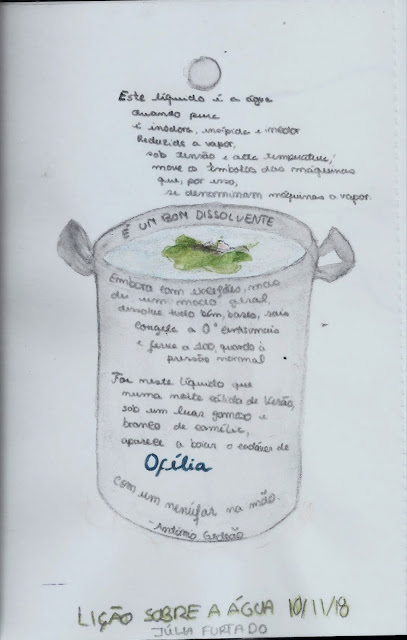 Este líquido é a água
quando pura
é inodora, insípida e incolor
Reduzida a vapor,
sob tensão e alta temperatura,
move os êmbolos das máquinas
que, por isso,
se denominam máquinas a vapor.
É UM BOM DISSOLVENTE
Embora com exceções, mas
de um modo geral,
dissolve tudo bem, bases, sais
congela a 0° centesimais
e ferve a 100, quando à
pressão normal
Foi neste líquido que
numa noite cálida de Verão,
sob um luar gomoso e
branco de camélia,
apareceu a boiar o cadáver de
Ofélia
com um nenúfar na mão.
- António Gedeão
LIÇÃO SOBRE A ÁGUA 10/11/18
JÚLIA FURTADO